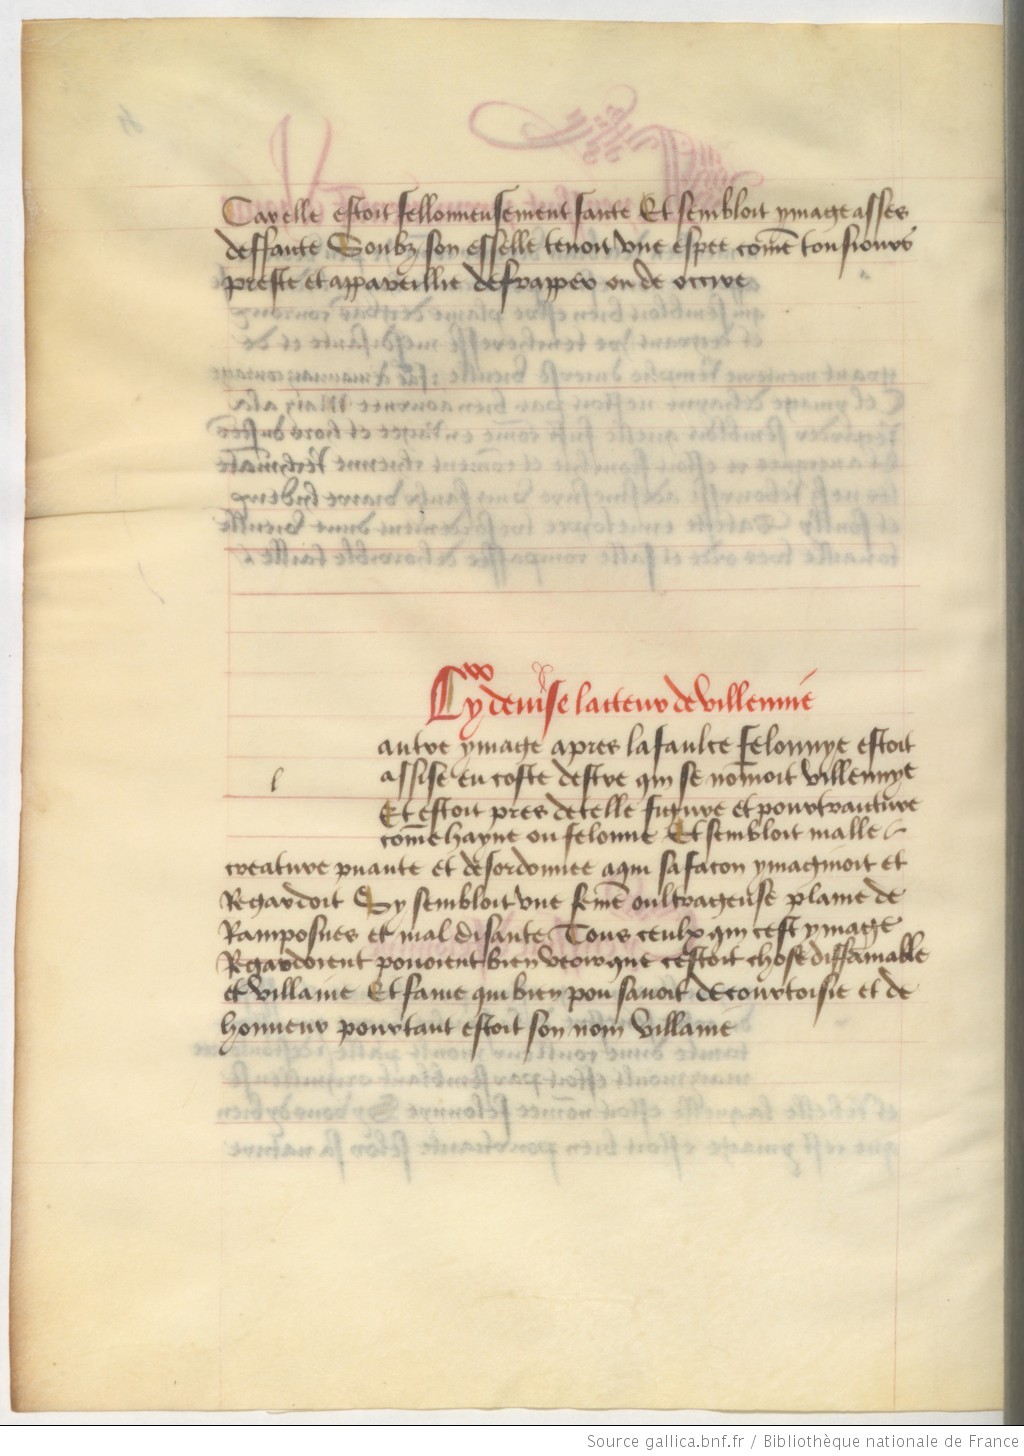 Car elle estoit fellonneusement faicte Et sembloit ymage asses
deffaicte Soubz son esselle tenoit vne espee comē tousiours
preste et appareillie de frapper ou de occire
Cy deuise lacteur de villennie
autre ymage apres la faulce felonnye estoit
l assise eu coste destre qui se nōmoit villennye
Et estoit pres de telle figure et pourtraiture
cōme hayne ou felonnie Et sembloit malle
creature puante et desordonnee a qui sa facon ymaginoit et
Regardoit Sy sembloit vne femē oultrageuse plaine de
Ramposnes et mal disante Tous ceulx qui cest ymage
Regardoient pouoient bien veoir que cestoit chose diffamable
et villaine Et fame qui bien pou sauoit de courtoisie et de
honneur pourtant estoit son nom villaine
Source gallica.bnf.fr / Bibliothèque nationale de France